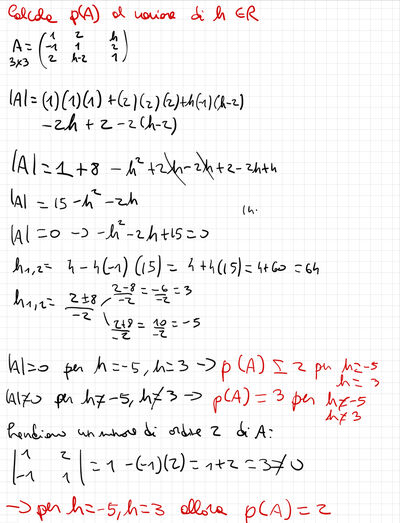 Calcola p(A) al variare di h ∈ R
A = ( 1 2 h
3×3 -1 1 2
2 h-2 1 )
|A| = (1)(1)(1) + (2)(2)(2) + h(-1)(h-2)
-2h + 2 - 2(h-2)
|A| = 1 + 8 - h² + 2h - 2h + 2 - 2h + 4
|A| = 15 - h² - 2h
|A| = 0 -> -h² - 2h + 15 = 0
h1,2 = 4 - 4(-1)(15) = 4 + 4(15) = 4 + 60 = 64
h1,2 = 2±8/-2 2-8/-2 = -6/-2 = 3
2+8/-2 = 10/-2 = -5
|A| = 0 per h = -5, h = 3 -> p(A) ≤ 2 per h = -5
h = 3
|A| ≠ 0 per h ≠ -5, h ≠ 3 -> p(A) = 3 per h ≠ -5
h ≠ 3
Prendiamo un minore di ordine 2 di A:
| 1 2
-1 1 | = 1 - (-1)(2) = 1 + 2 = 3 ≠ 0
-> per h = -5, h = 3 allora p(A) = 2